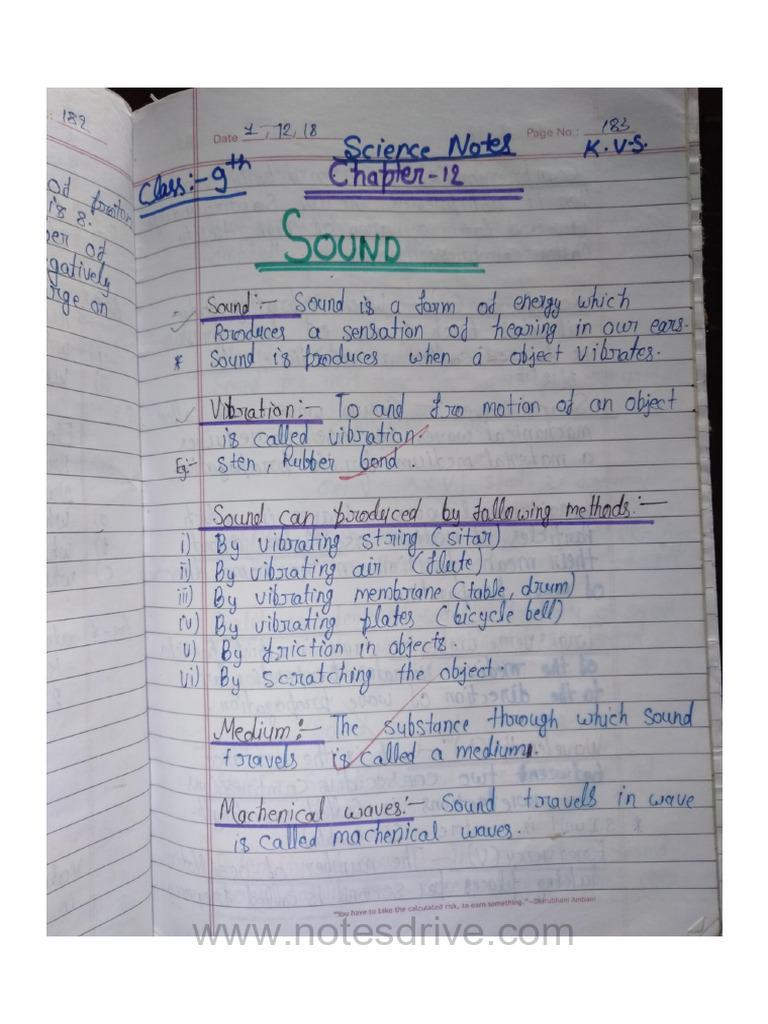 : 182
Date 1-12,18 Page No.: 183
Science Notes K.V.S.
Class:- 9th Chapter-12
SOUND
of
is 8.
ber of
gatively
rge on
Sound:- Sound is a form of energy which
Produces a sensation of hearing in our ears.
* Sound is produces when a object vibrates.
Vibration:- To and fro motion of an object
is called vibration.
Eg:- Sten, Rubber bond.
Sound can produced by following methods:-
i) By vibrating string (sitar)
ii) By vibrating air (flute)
iii) By vibrating membrane (table, drum)
iv) By vibrating plates (bicycle bell)
v) By friction in objects.
vi) By scratching the object.
Medium:- The substance thorough which sound
travels is called a medium.
Machenical waves:- Sound travels in wave
is called machenical waves.
"You have to take the calculated risk, to earn something." -Dhirubhai Ambani
www.notesdrive.com